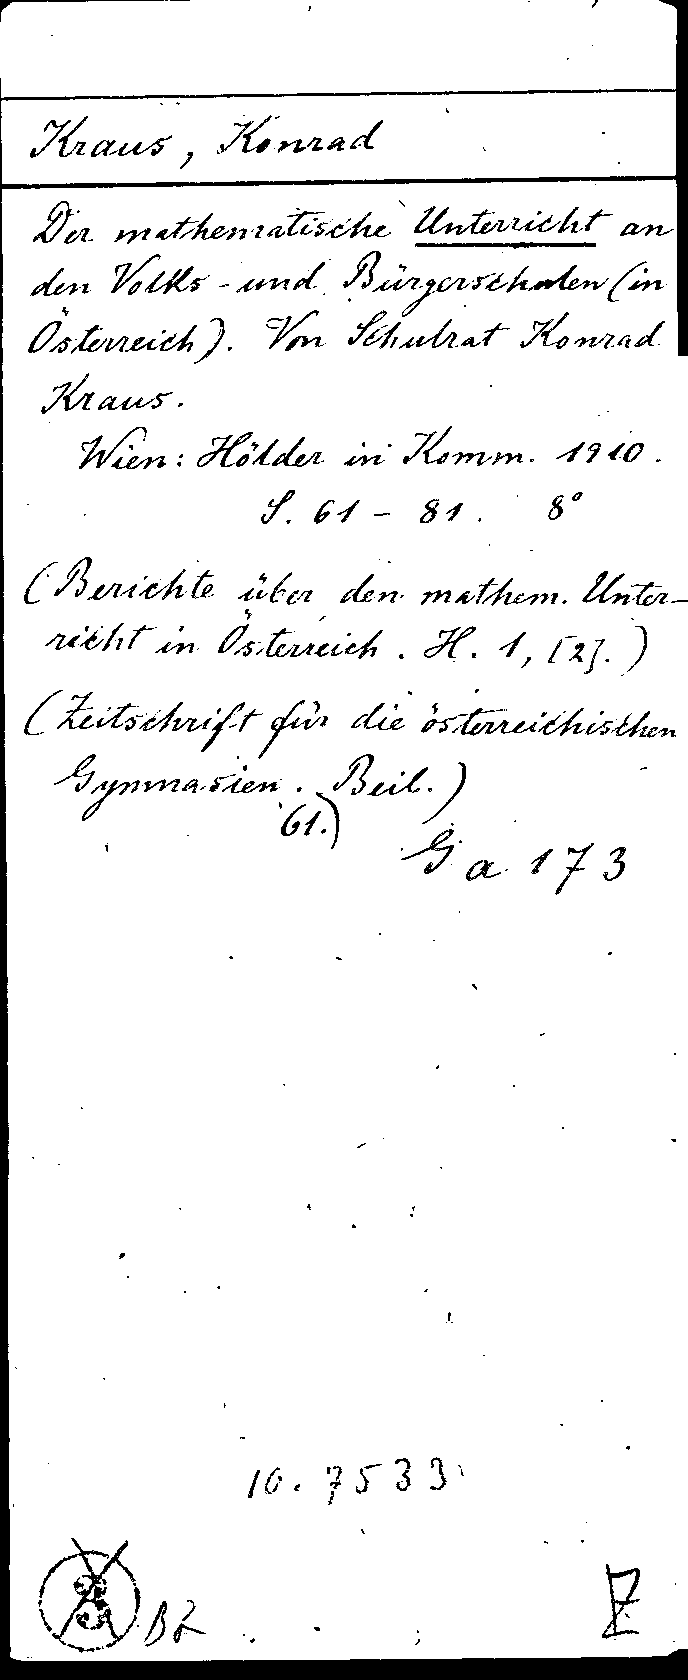 Kraus, Konrad
Der mathematische Unterricht an
den Volks- und Bürgerschulen (in
Österreich). Von Schulrat Konrad
Kraus.
Wien: Hölder in Komm. 1910.
S. 61 - 81. 8°
(Berichte über den mathem. Unter-
richt in Österreich. H. 1, [2].)
(Zeitschrift für die österreichischen
Gymnasien. Beil.)
61.)
Ga 173
10.7533
BZ